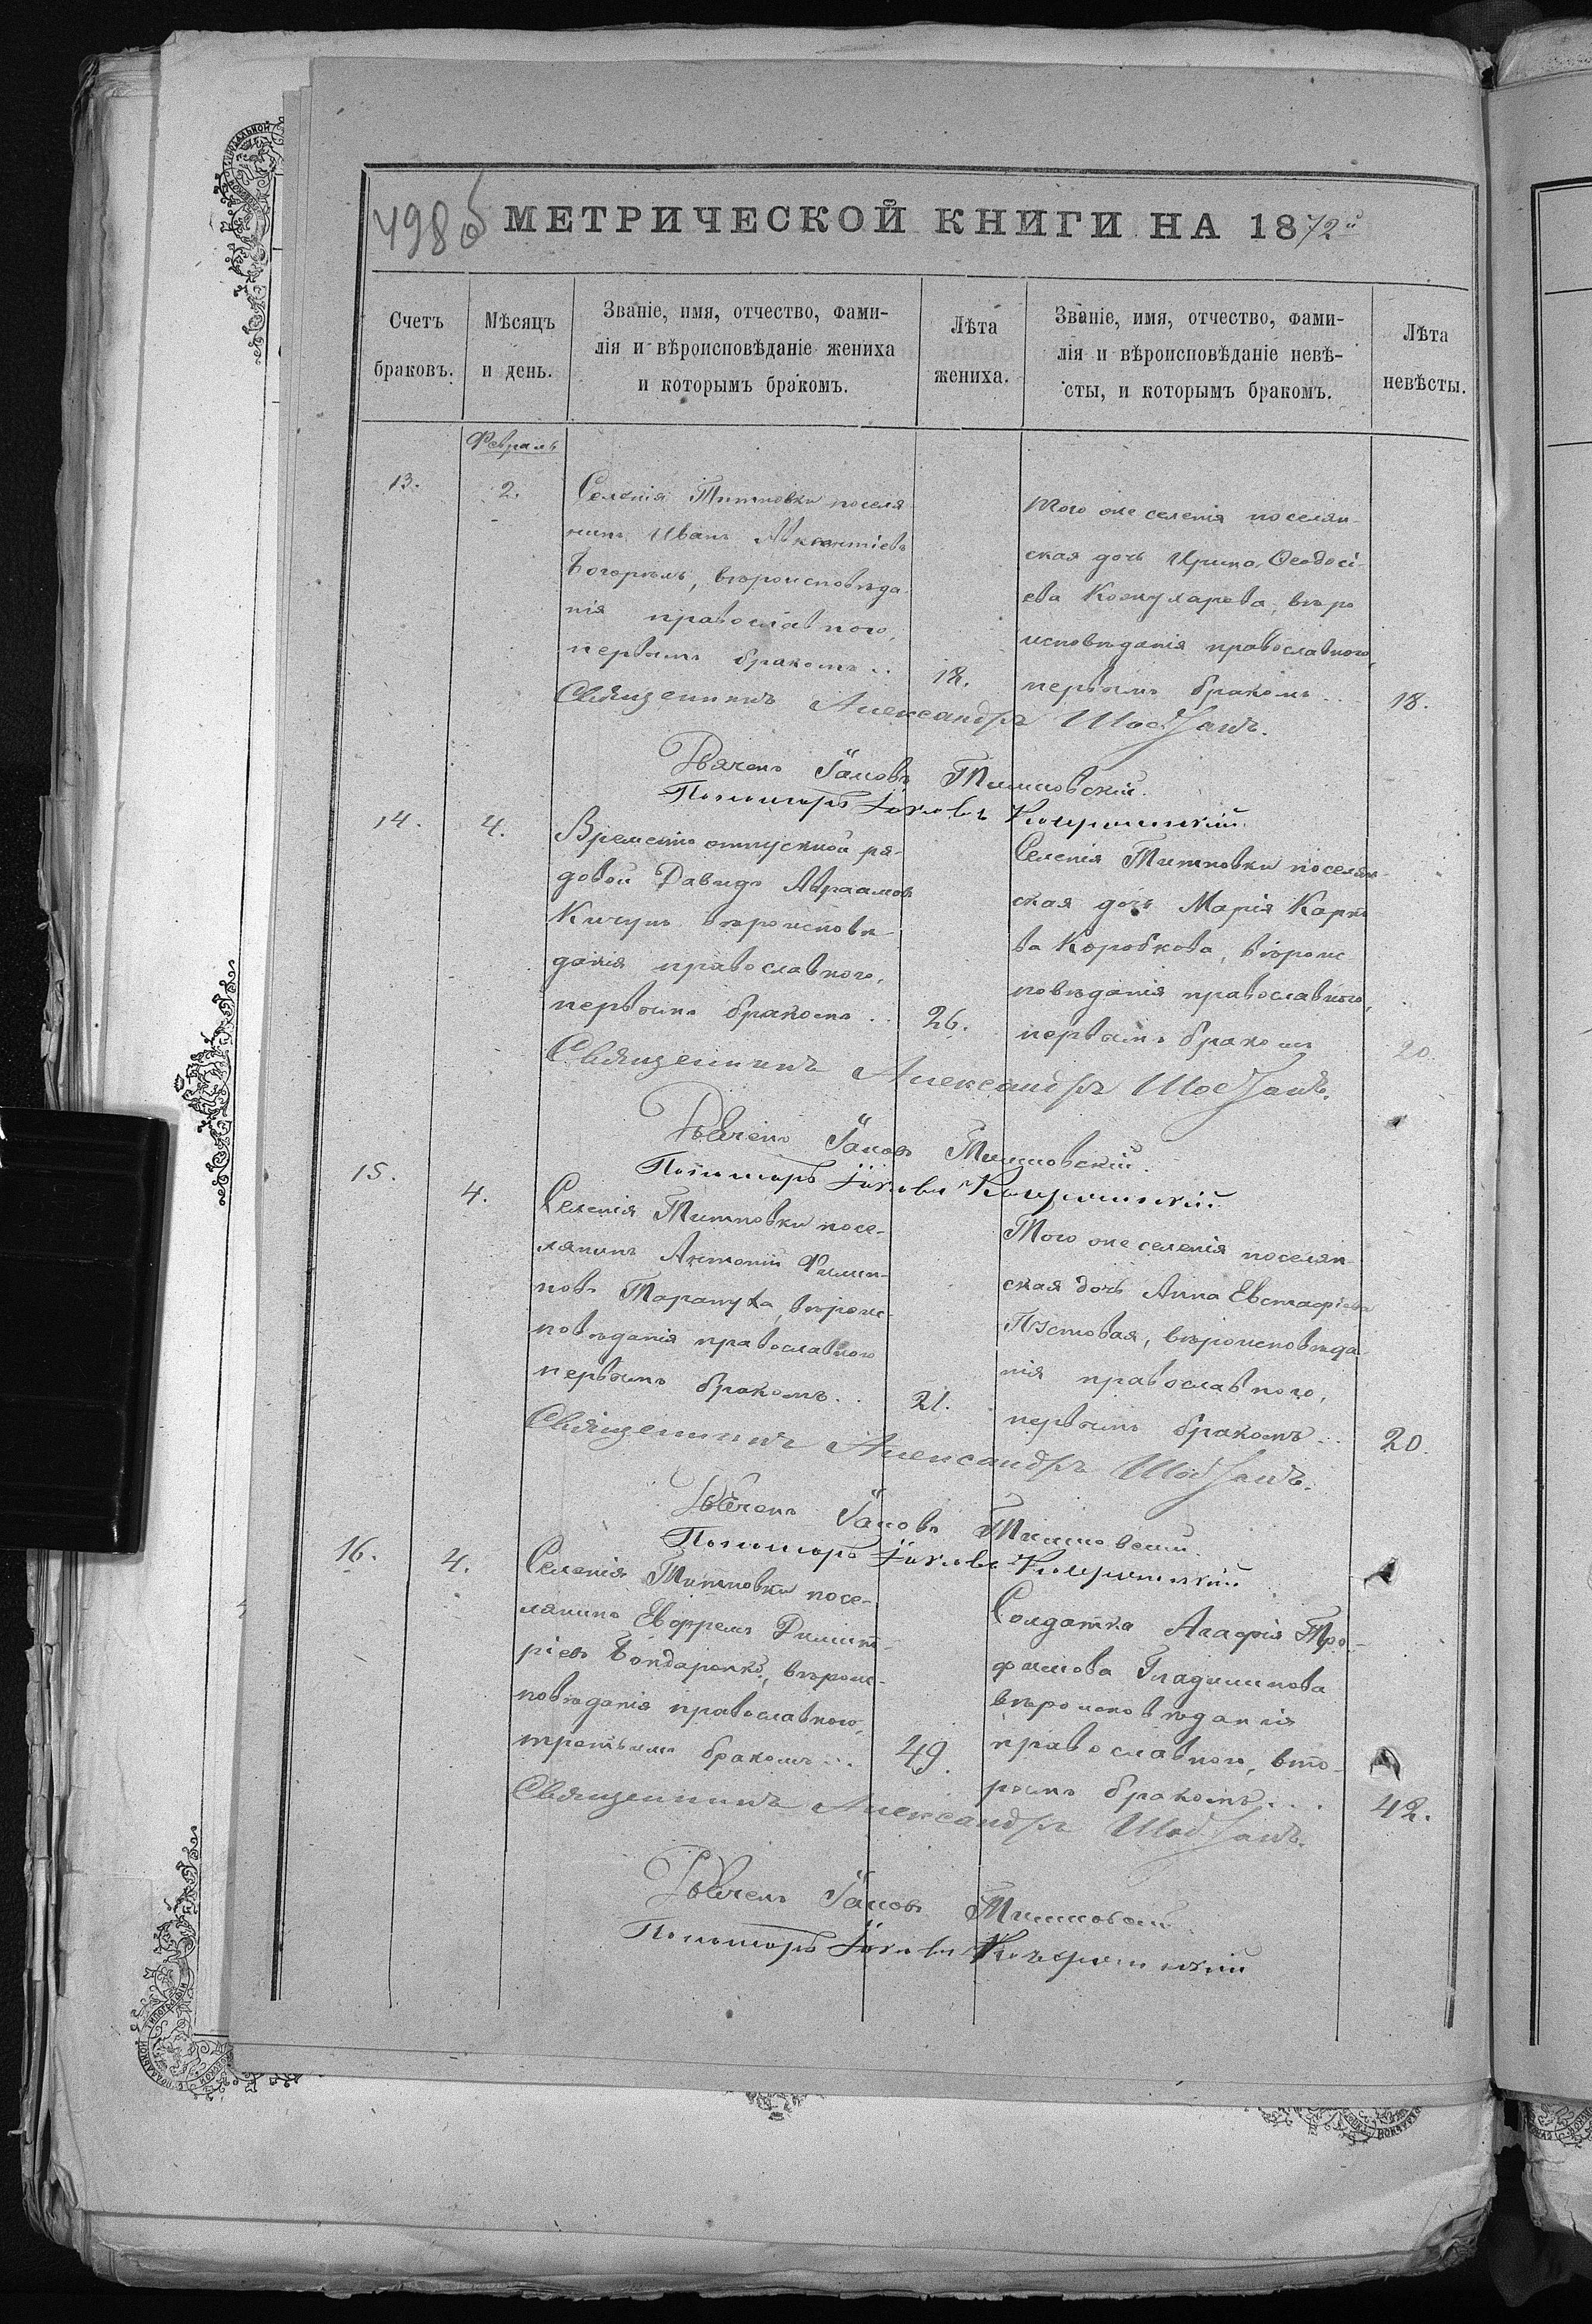 498 об МЕТРИЧЕСКОЙ КНИГИ НА 1872й
Счетъ браковъ.
Мѣсяцъ и день.
Званіе, имя, отчество, фами-
лія и вѣроисповѣданіе жениха
и которымъ бракомъ.
Лѣта жениха.
Званіе, имя, отчество, фами-
лія и вѣроисповѣданіе невѣ-
сты, и которымъ бракомъ.
Лѣта невѣсты.
Февраль
13.
2.
Селенія Тишковки поселя
нинъ Иванъ Авксентіевъ
вѣроисповѣда
нія православного,
первымъ бракомъ..
18.
Того же селенія поселян-
ская дочь Ирина Ѳеодосі-
ева Кожухарева, вѣро
исповѣданія православного,
первымъ бракомъ...
18.
Священникъ Александръ
Дьячекъ Іаковъ Тишковскій.
Пономарь Іаковъ
14.
4.
Временно отпускной ря-
довой Давидъ Авраамовъ
Кичунъ вѣроисповѣ
данія православного,
первымъ бракомъ..
26.
Селенія Тишковки поселян-
ская дочь Марія Карпо
ва Коробкова, вѣроис
повѣданія православного,
первымъ бракомъ
20.
Священникъ Александръ
Дьячекъ Іаковъ Тишковскій.
Пономарь Іаковъ
15.
4.
Селенія Тишковки посе-
лянинъ Антоній Филип-
повъ Тарануха, вѣроис-
повѣданія православного
первымъ бракомъ..
21.
Того же селенія поселян-
ская дочь Анна Евстафіева
Пустовая, вѣроисповѣда
нія православного,
первымъ бракомъ...
20.
Священникъ Александръ
Дьячекъ Іаковъ Тишковскій.
Пономарь Іаковъ
16.
4.
Селенія Тишковки посе-
лянинъ Евфремъ Димит-
ріевъ Бондаренко, вѣроис-
повѣданія православного,
третьимъ бракомъ...
49.
Солдатка Агафія Тро-
фимова Гладишкова
вѣроисповѣданія
православного, вто-
рымъ бракомъ...
42.
Священникъ Александръ
Дьячекъ Іаковъ Тишковскій
Пономарь Іаковъ